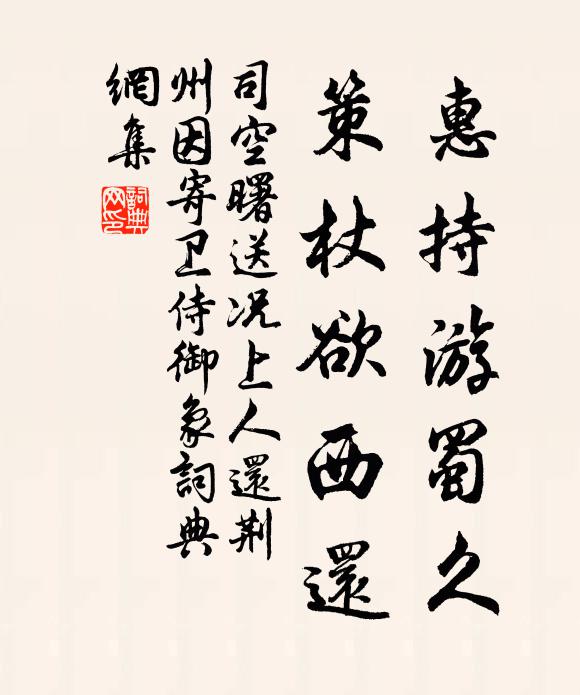 惠持游蜀久
策杖欲西還
司空曙送况上人還荆
州因寄卫侍御象詞典
網集
詞典网印